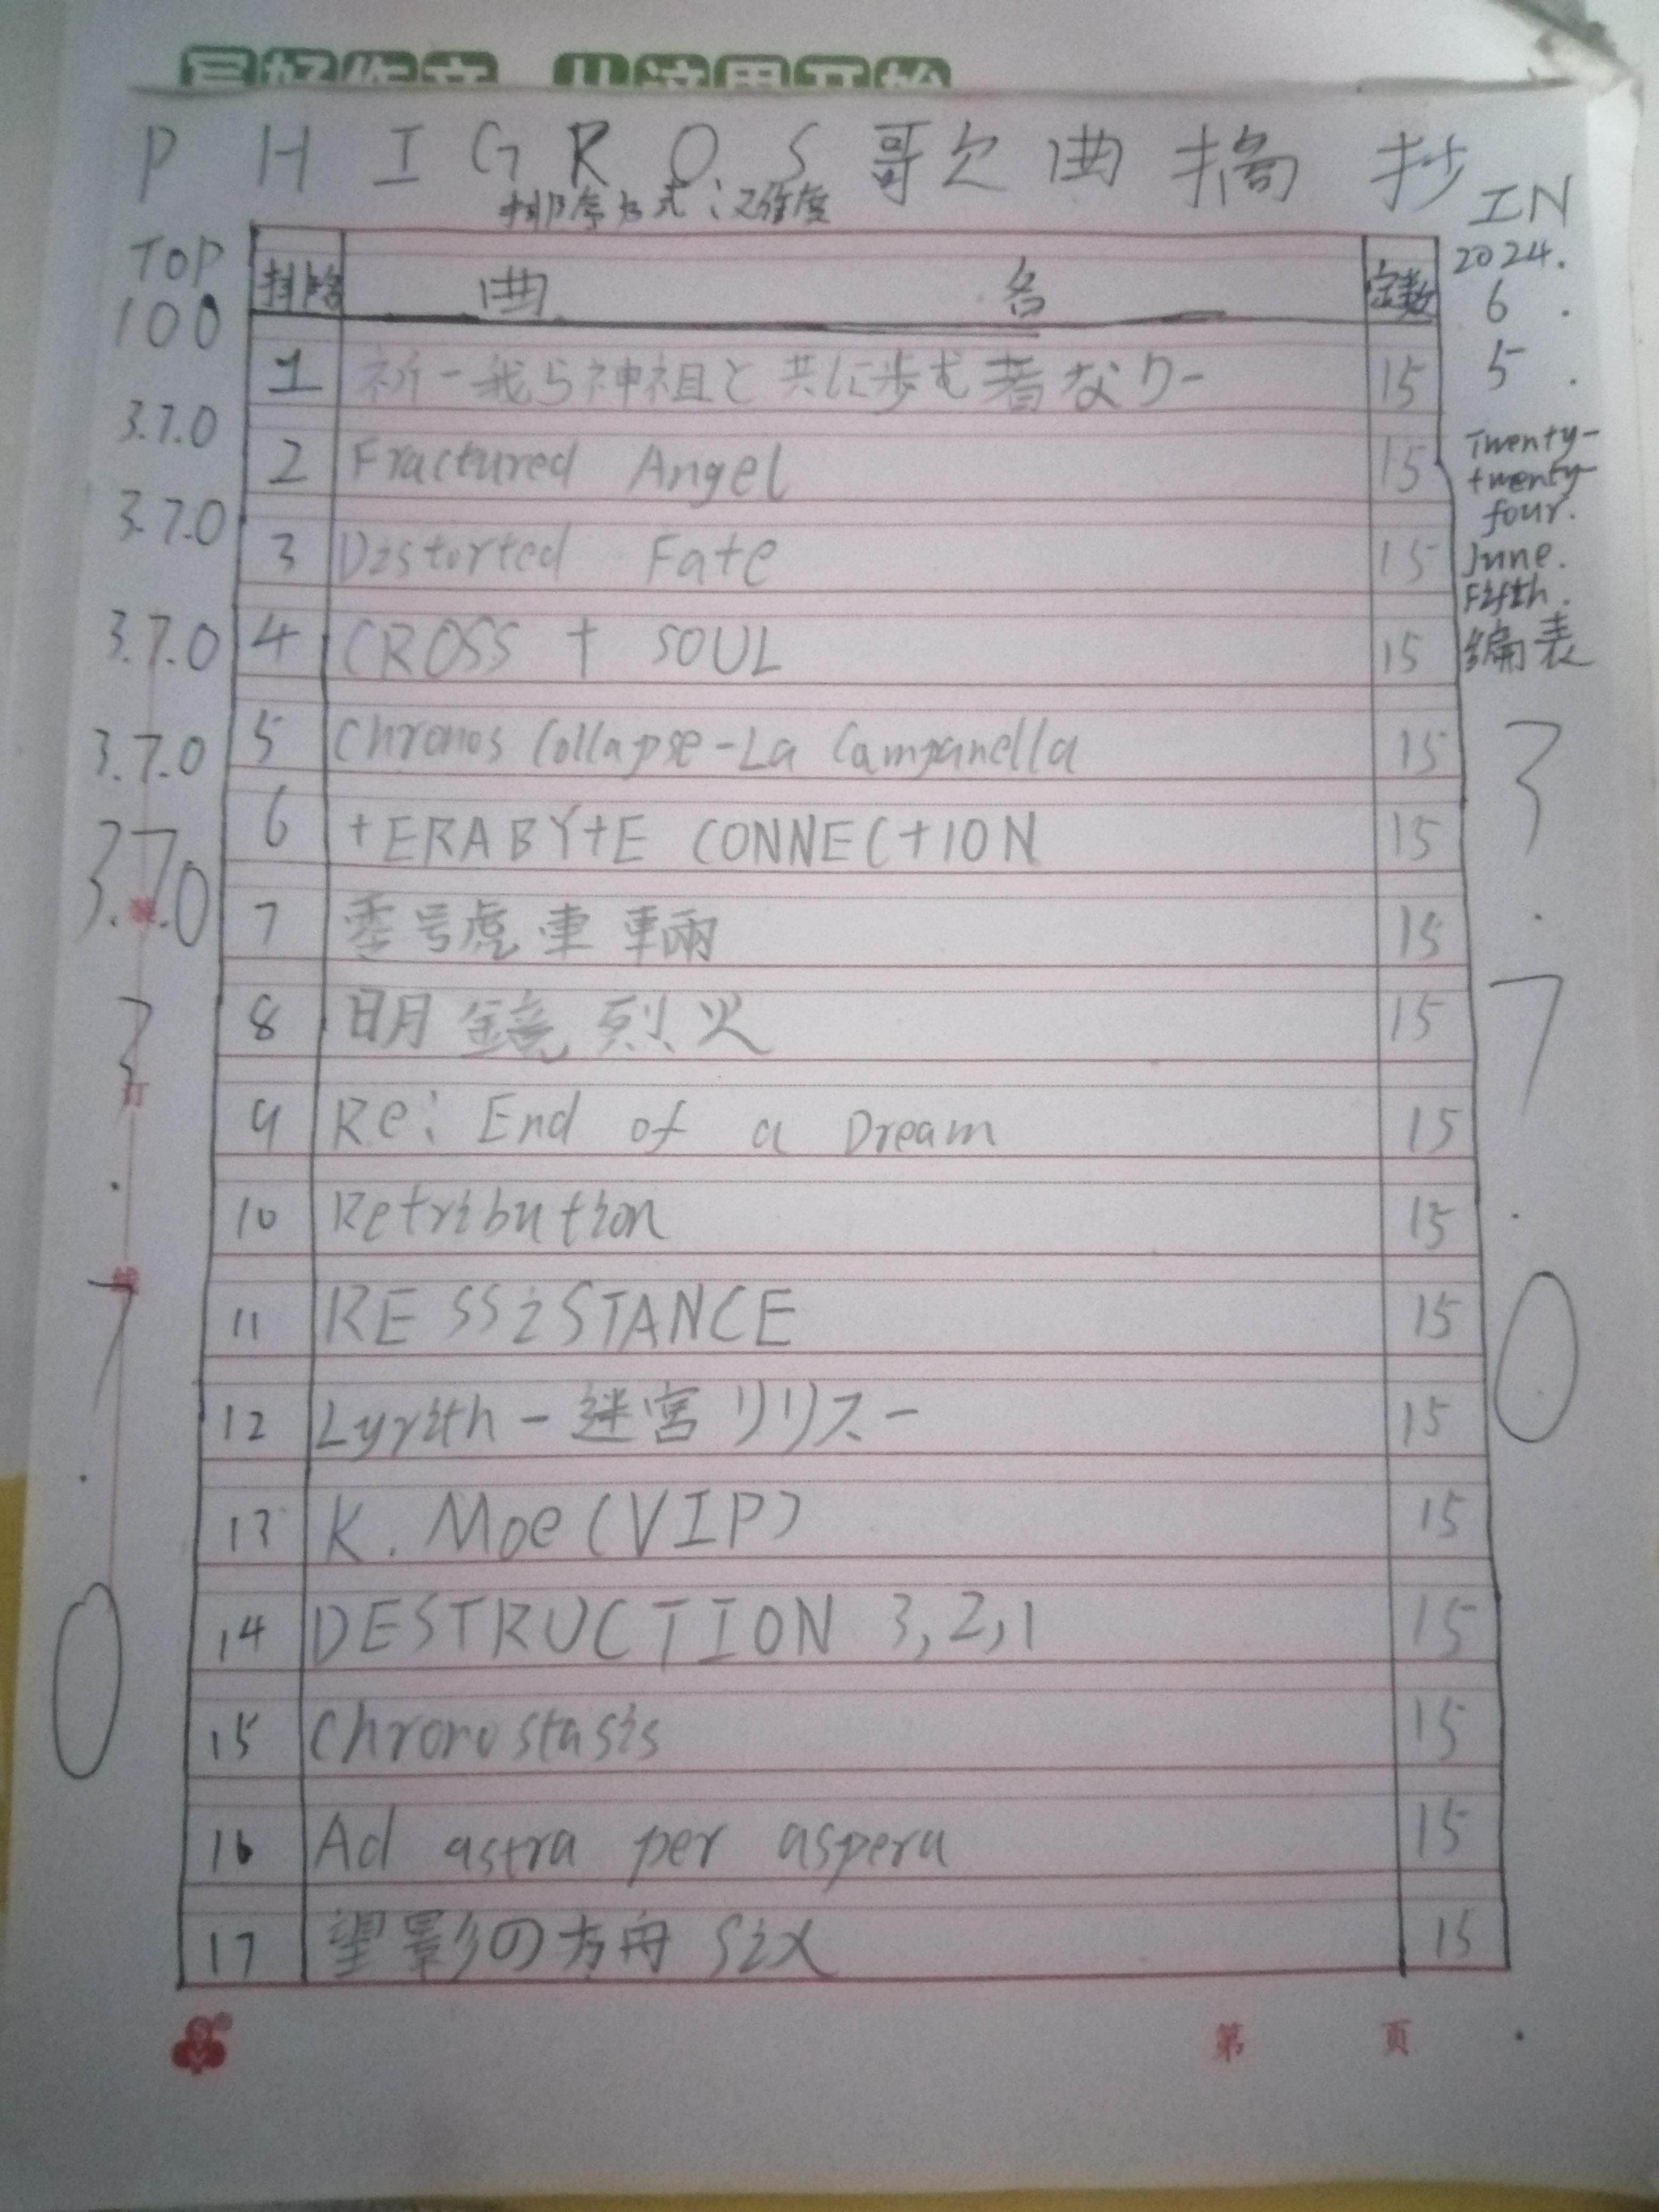 写好作文 从这里开始
PHIGROS歌曲摘抄
排序方式:难度
IN
TOP
100
2024.
6.
5.
Twenty-
twenty-
four.
June.
Fifth.
編表
3.7.0
3.7.0
3.7.0
3.7.0
3.7.0
3.7.0
3.7.0
排序 曲名 定数
1 祈-我ら神祖と共に歩む者なり- 15
2 Fractured Angel 15
3 Distorted Fate 15
4 CROSS † SOUL 15
5 Chronos Collapse-La Campanella 15
6 +ERABY+E CONNEC+ION 15
7 零号車輌 15
8 明鏡烈火 15
9 Re: End of a Dream 15
10 Retribution 15
11 RESSiSTANCE 15
12 Lyrith-迷宮リリス- 15
13 K.Moe(VIP) 15
14 DESTRUCTION 3,2,1 15
15 Chronostasis 15
16 Ad astra per aspera 15
17 望影の方舟Six 15
装
订
线
第 页